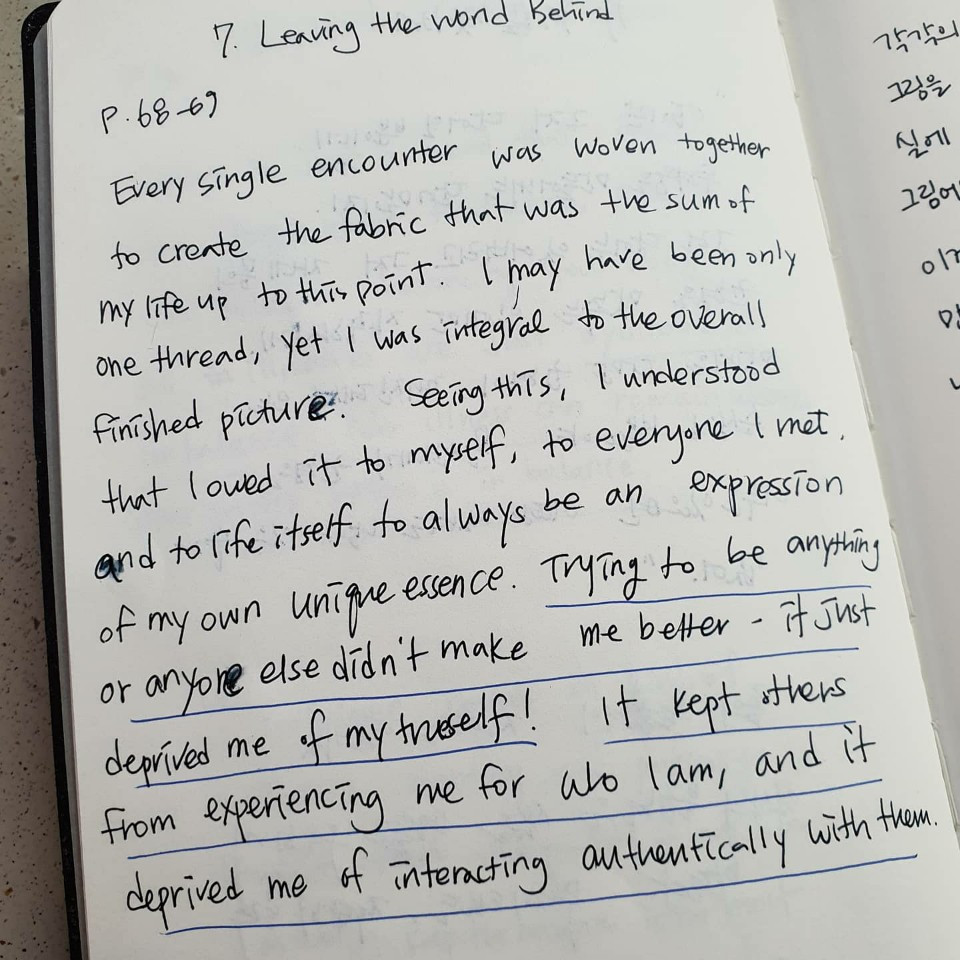 7. Leaving the world Behind
P. 68-69
Every single encounter was woven together
to create the fabric that was the sum of
my life up to this point. I may have been only
one thread, yet I was integral to the overall
finished picture. Seeing this, I understood
that I owed it to myself, to everyone I met,
and to life itself to always be an expression
of my own unique essence. Trying to be anything
or anyone else didn't make me better - it just
deprived me of my trueself! It kept others
from experiencing me for who I am, and it
deprived me of interacting authentically with them.
각각의
그림을
실에
그림에